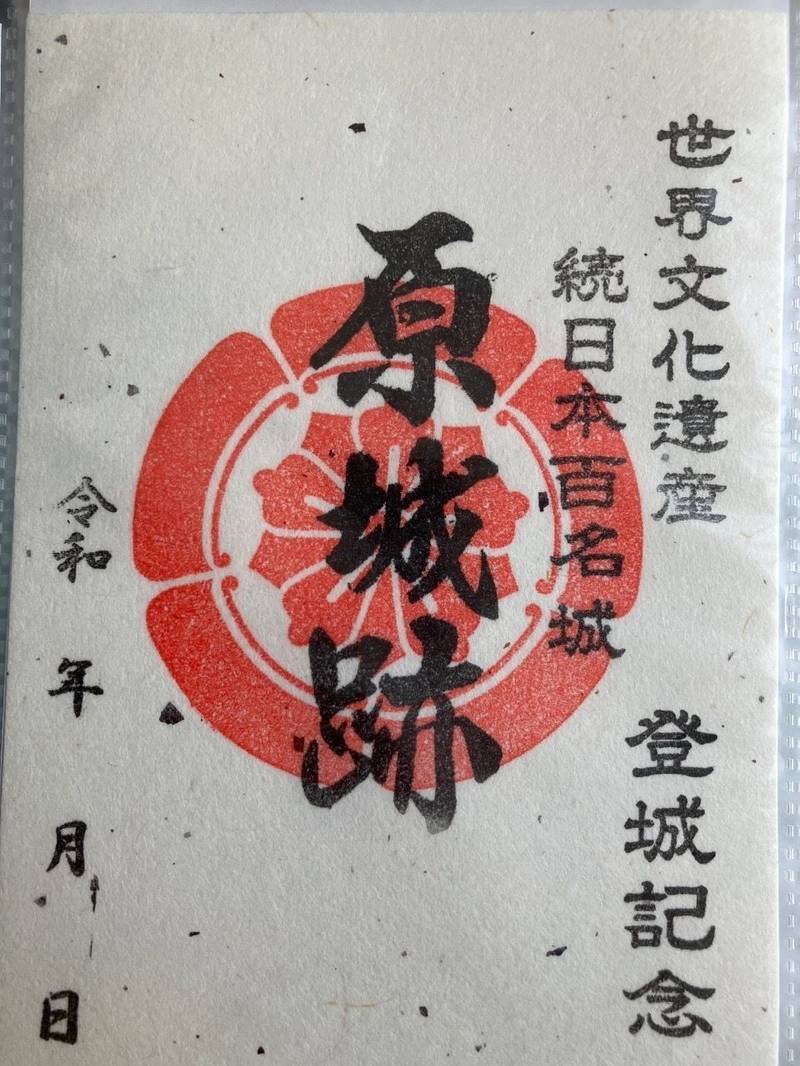 世界文化遺産
続日本百名城
登城記念
原城跡
令和 年 月 日